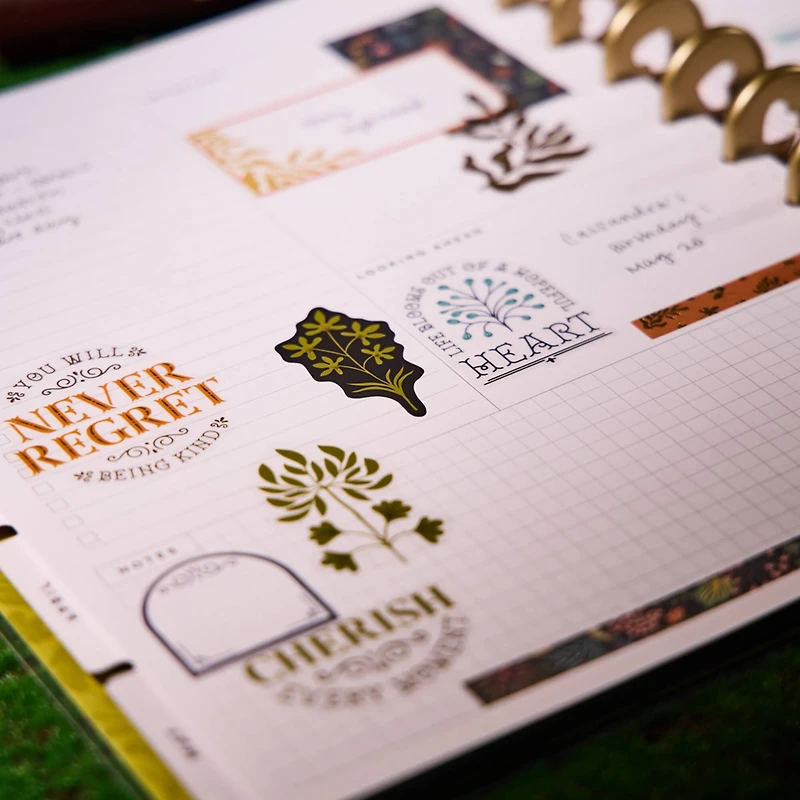 LOOKING AHEAD
Cassandra's
Birthday!
May 20
LIFE BLOOMS OUT OF A HOPEFUL
HEART
YOU WILL
NEVER
REGRET
BEING KIND
NOTES
CHERISH
EVERY MOMENT
APRIL